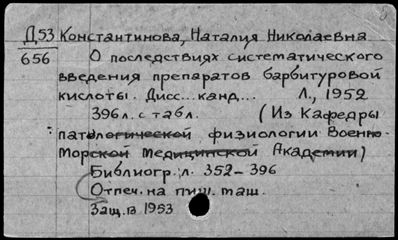 Д53 Константинова, Наталия Николаевна
656 О последствиях систематического
введения препаратов барбитуровой
кислоты. Дисс... канд... Л., 1952
396 л. с табл. (Из Кафедры
патологической физиологии Военно-
Морской Медицинской Академии)
Библиогр. л. 352-396
Отпеч. на пиш. маш.
Защ. в 1953